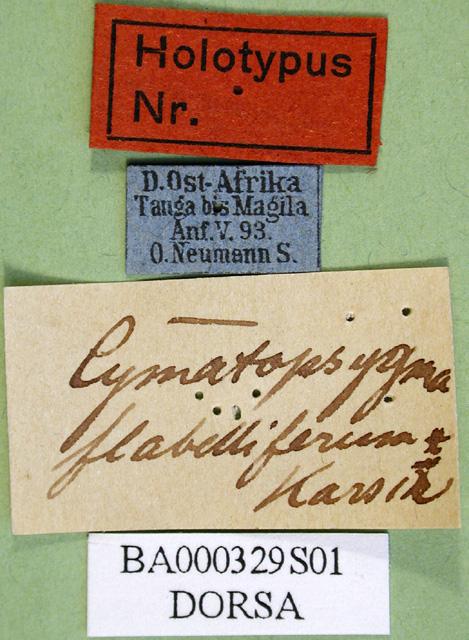 Holotypus
Nr.
D. Ost-Afrika
Tanga bis Magila
Anf. V. 93.
O. Neumann S.
Cymatopsygma
flabelliferum *
Karsch
BA000329S01
DORSA